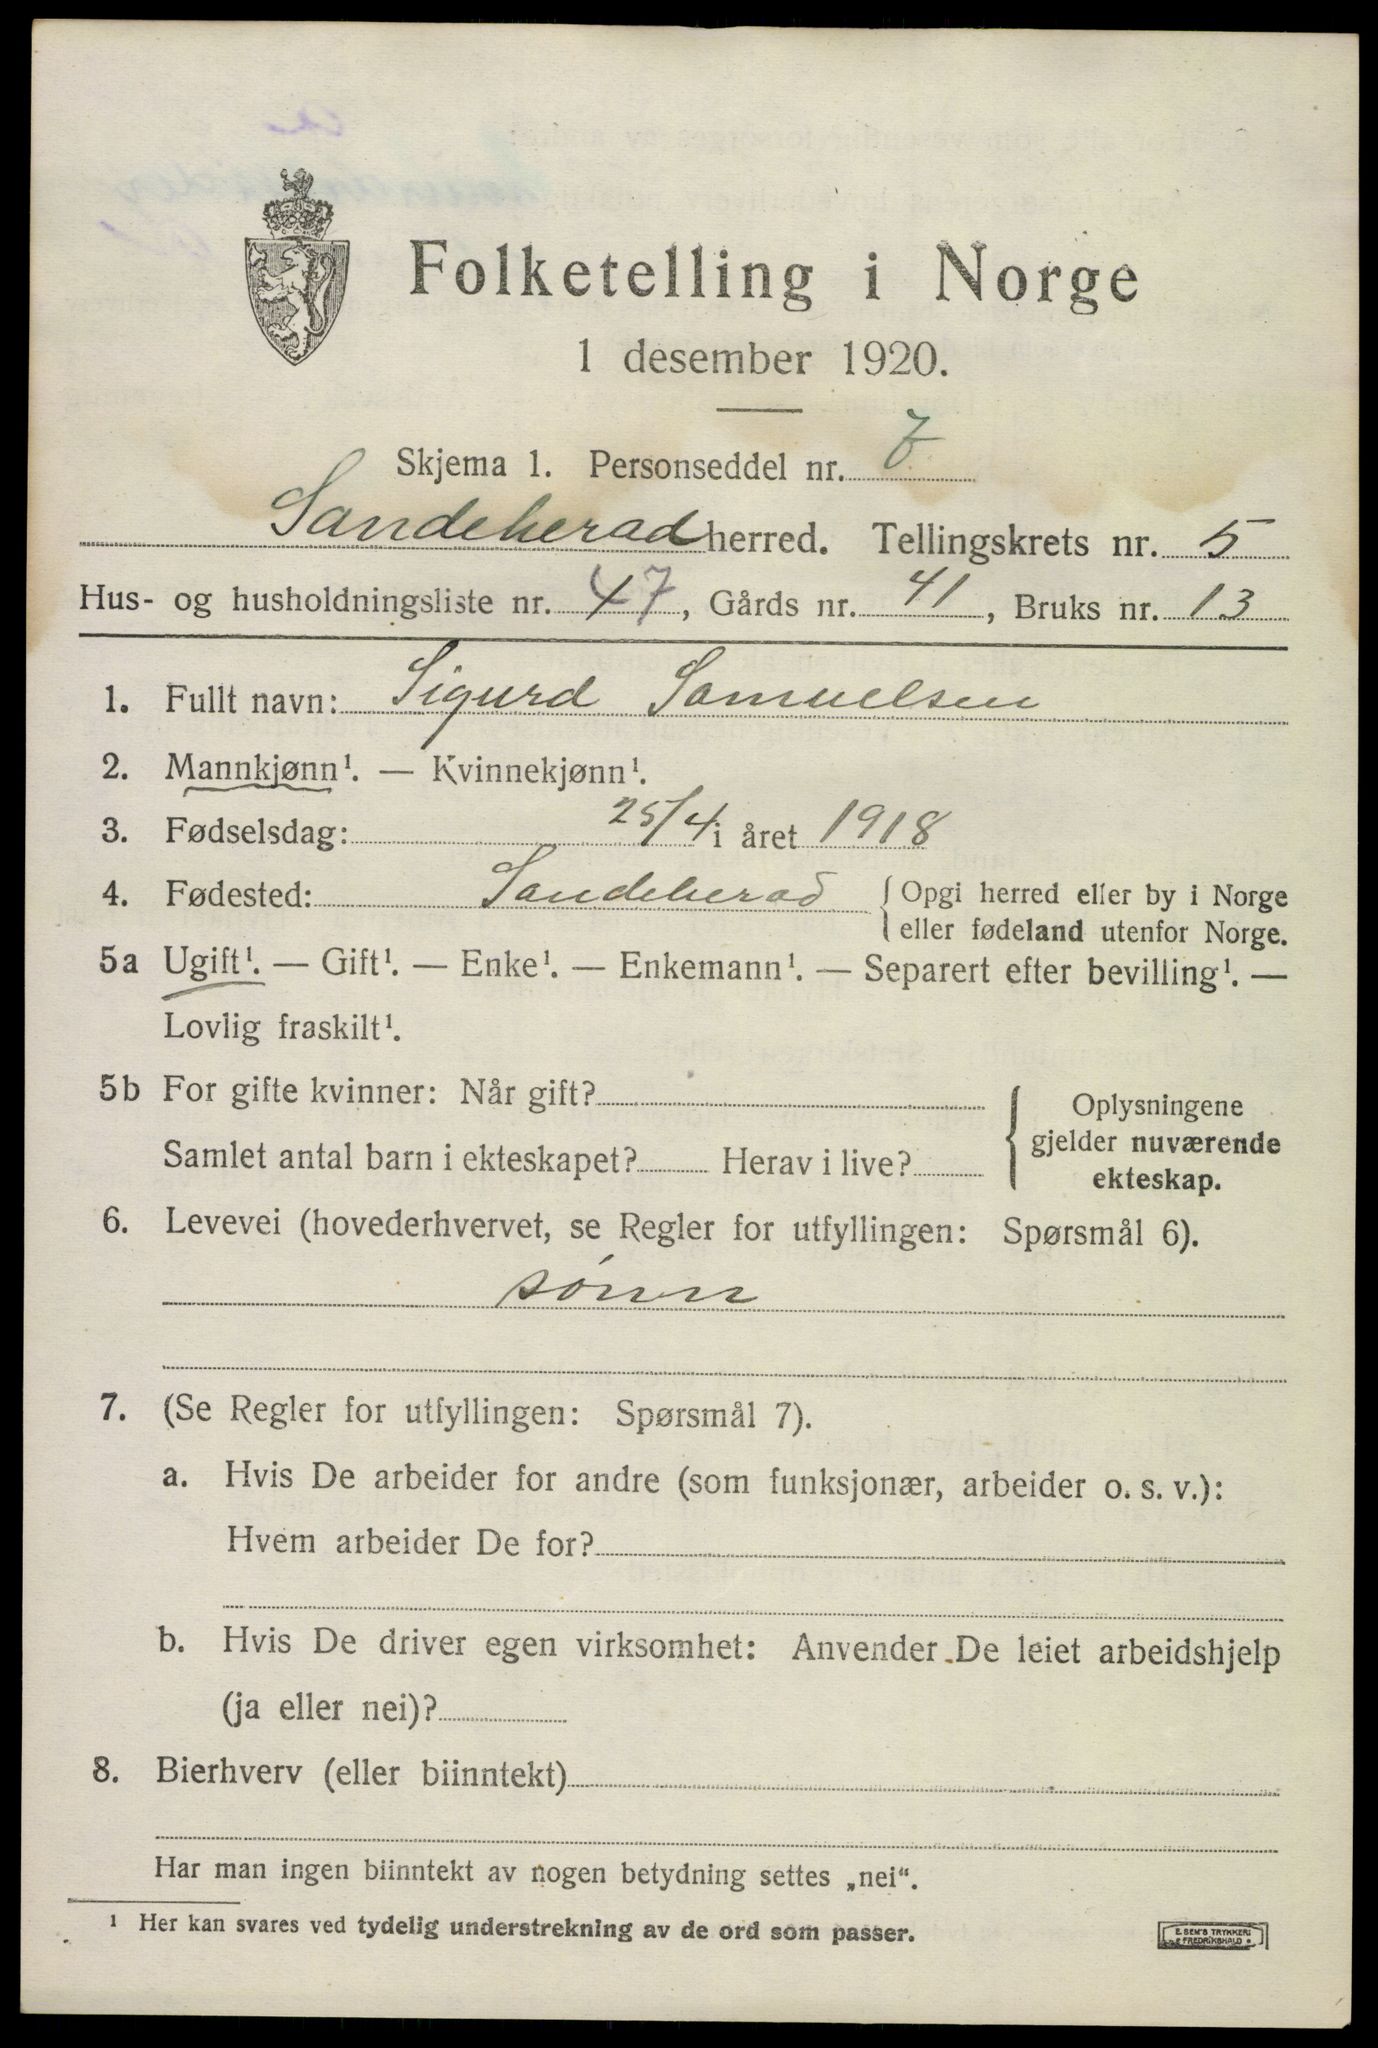 Folketelling i Norge
1 desember 1920.
Skjema 1. Personseddel nr. 7
Sandeherad herred. Tellingskrets nr. 5
Hus- og husholdningsliste nr. 47, Gårds nr. 41, Bruks nr. 13
1. Fullt navn: Sigurd Samuelsen
2. Mannkjønn¹. — Kvinnekjønn¹.
3. Fødselsdag: 25/4 i året 1918
4. Fødested: Sandeherad { Opgi herred eller by i Norge
eller fødeland utenfor Norge.
5a Ugift¹. — Gift¹. — Enke¹. — Enkemann¹. — Separert efter bevilling¹. —
Lovlig fraskilt¹.
5b For gifte kvinner: Når gift?
Samlet antal barn i ekteskapet? Herav i live?
Oplysningene
gjelder nuværende
ekteskap.
6. Levevei (hovederhvervet, se Regler for utfyllingen: Spørsmål 6).
sónn
7. (Se Regler for utfyllingen: Spørsmål 7).
a. Hvis De arbeider for andre (som funksjonær, arbeider o. s. v.):
Hvem arbeider De for?
b. Hvis De driver egen virksomhet: Anvender De leiet arbeidshjelp
(ja eller nei)?
8. Bierhverv (eller biinntekt)
Har man ingen biinntekt av nogen betydning settes „nei“.
¹ Her kan svares ved tydelig understrekning av de ord som passer.
E. SEM'S TRYKKERI
FREDRIKSHALD